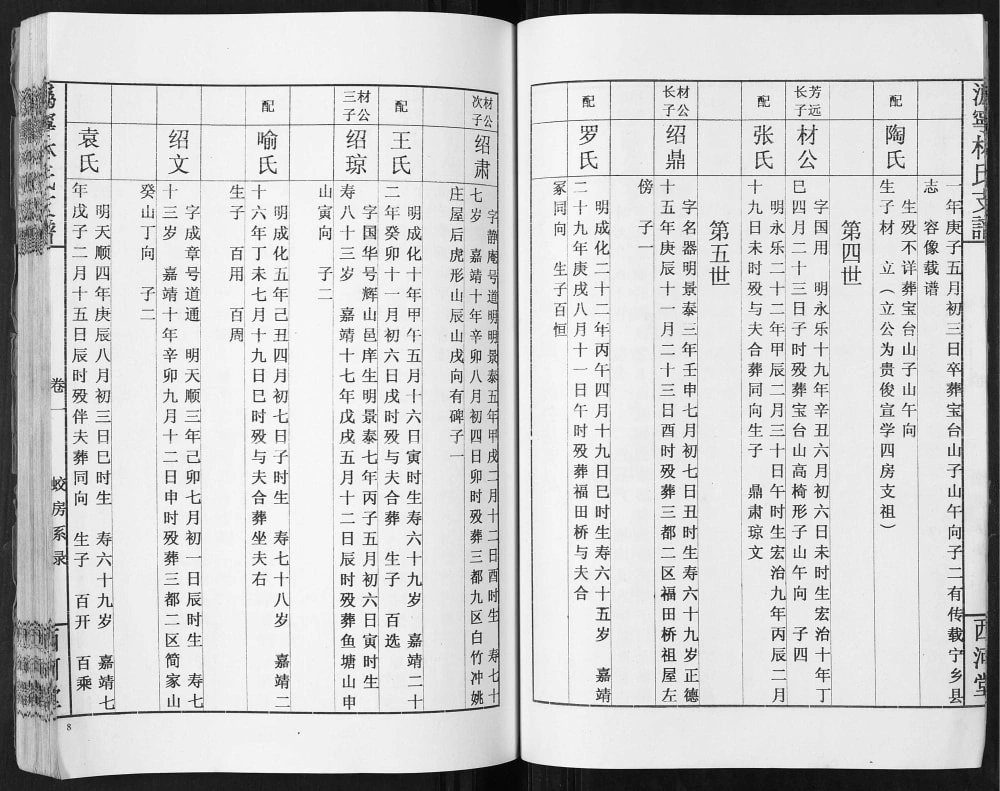 沩寧林氏支譜
西河堂
一年庚子五月初三日卒葬宝台山子山午向子二有传载宁乡县
志　容像载谱
配
陶氏
生殁不详葬宝台山子山午向
生子材　立（立公为贵俊宣学四房支祖）
第四世
芳远
长子
材公
字国用　明永乐十九年辛丑六月初六日未时生宏治十年丁
巳四月二十三日子时殁葬宝台山高椅形子山午向　子四
配
张氏
明永乐二十二年甲辰二月三十日午时生宏治九年丙辰二月
十九日未时殁与夫合葬同向生子　鼎肃琼文
第五世
材公
长子
绍鼎
字名器明景泰三年壬申七月初七日丑时生寿六十九岁正德
十五年庚辰十一月二十三日酉时殁葬三都二区福田桥祖屋左
傍　子一
配
罗氏
明成化二十二年丙午四月十九日巳时生寿六十五岁　嘉靖
二十九年庚戌八月十一日午时殁葬福田桥与夫合
冢同向　生子百恒
材公
次子
绍肃
字静庵号道明明景泰五年甲戌二月十二日酉时生　寿七十
七岁　嘉靖十年辛卯八月初四日卯时殁葬三都九区白竹冲姚
庄屋后虎形山辰山戌向有碑子一
配
王氏
明成化十年甲午五月十六日寅时生寿六十九岁　嘉靖二十
二年癸卯十一月初六日戌时殁与夫合葬　生子　百选
材公
三子
绍琼
字国华号辉山邑庠生明景泰七年丙子五月初六日寅时生
寿八十三岁　嘉靖十七年戊戌五月十二日辰时殁葬鱼塘山申
山寅向　子二
配
喻氏
明成化五年己丑四月初七日子时生　寿七十八岁　嘉靖二
十六年丁未七月十九日巳时殁与夫合葬坐夫右
生子　百用　百周
绍文
字成章号道通　明天顺三年己卯七月初一日辰时生　寿七
十三岁　嘉靖十年辛卯九月十二日申时殁葬三都二区简家山
癸山丁向　子二
袁氏
明天顺四年庚辰八月初三日巳时生　寿六十九岁　嘉靖七
年戊子二月十五日辰时殁伴夫葬同向　生子　百开　百乘
卷一
蛟房系录
8